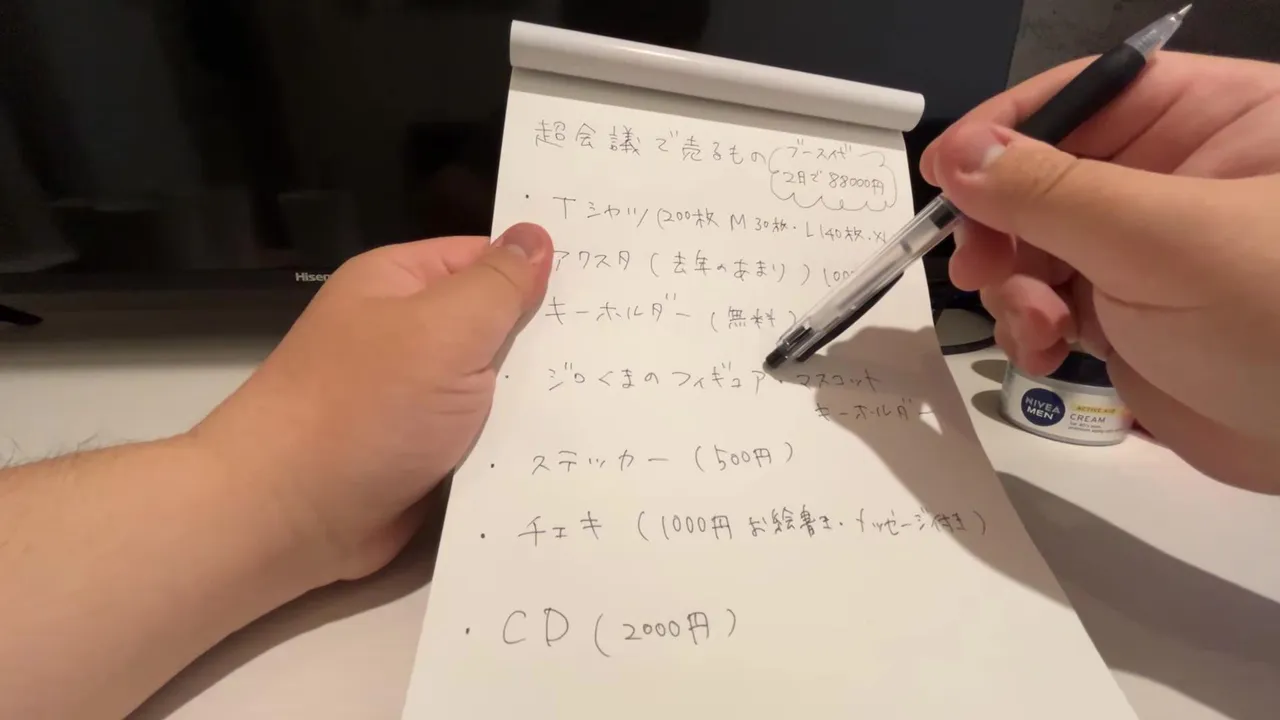 超会議で売るもの
ブース代
2日で88000円
・Tシャツ(200枚 M30枚・L140枚・X
アクスタ(去年のあまり)100
キーホルダー(無料)
・ジロくまのフィギュア・マスコット
キーホルダー
・ステッカー(500円)
・チェキ(1000円 お絵書き・メッセージ付き)
・CD(2000円)
Hisen
NIVEA
MEN
ACTIVE AGE
CREAM